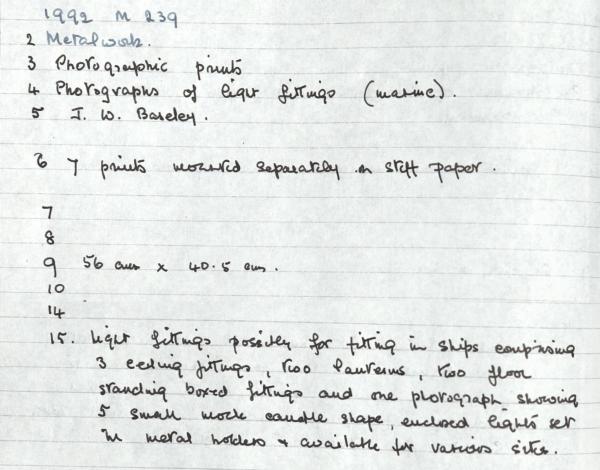 1992 M 239
2 Metalwork.
3 Photographic prints
4 Photographs of light fittings (marine).
5 J. W. Baseley.
6 7 prints mounted separately on stiff paper.
7
8
9 56 cms x 40.5 cms.
10
14
15. Light fittings possibly for fitting in ships comprising
3 ceiling fittings, two lanterns, two floor
standing boxed fittings and one photograph showing
5 small mock candle shape, enclosed lights set
in metal holders & available for various sites.